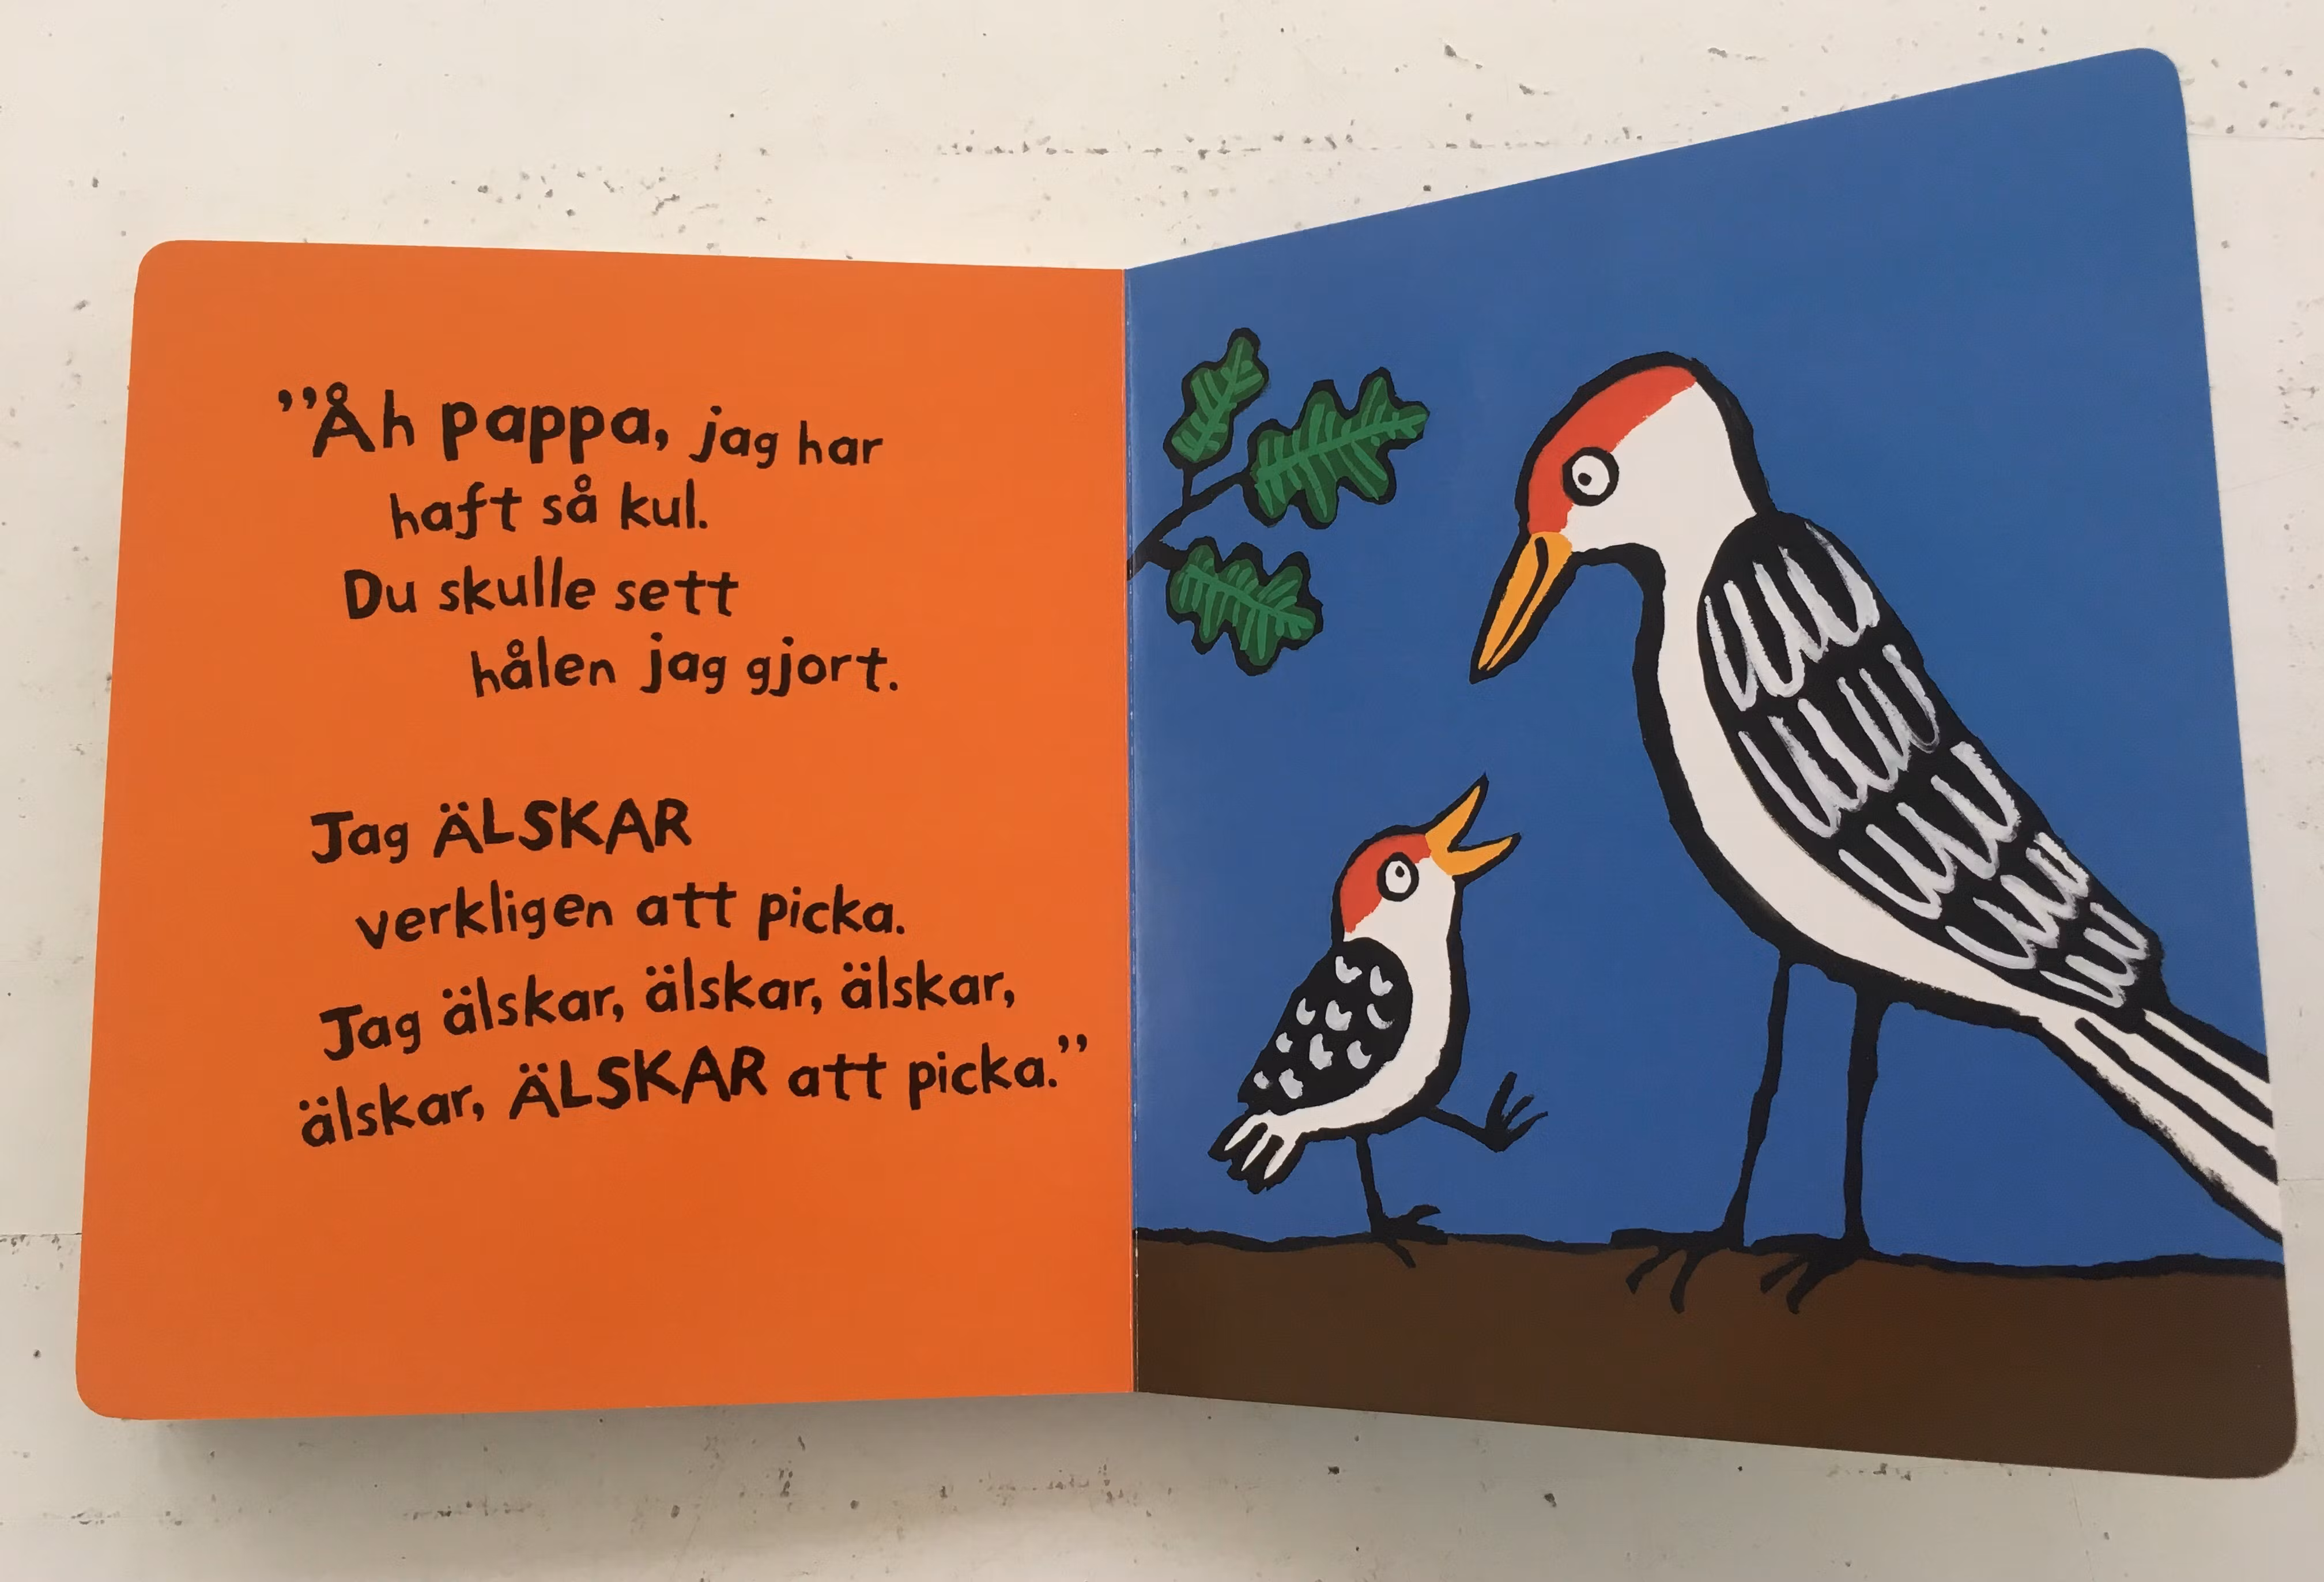 ”Åh pappa, jag har
haft så kul.
Du skulle sett
hålen jag gjort.
Jag ÄLSKAR
verkligen att picka.
Jag älskar, älskar, älskar,
älskar, ÄLSKAR att picka.”